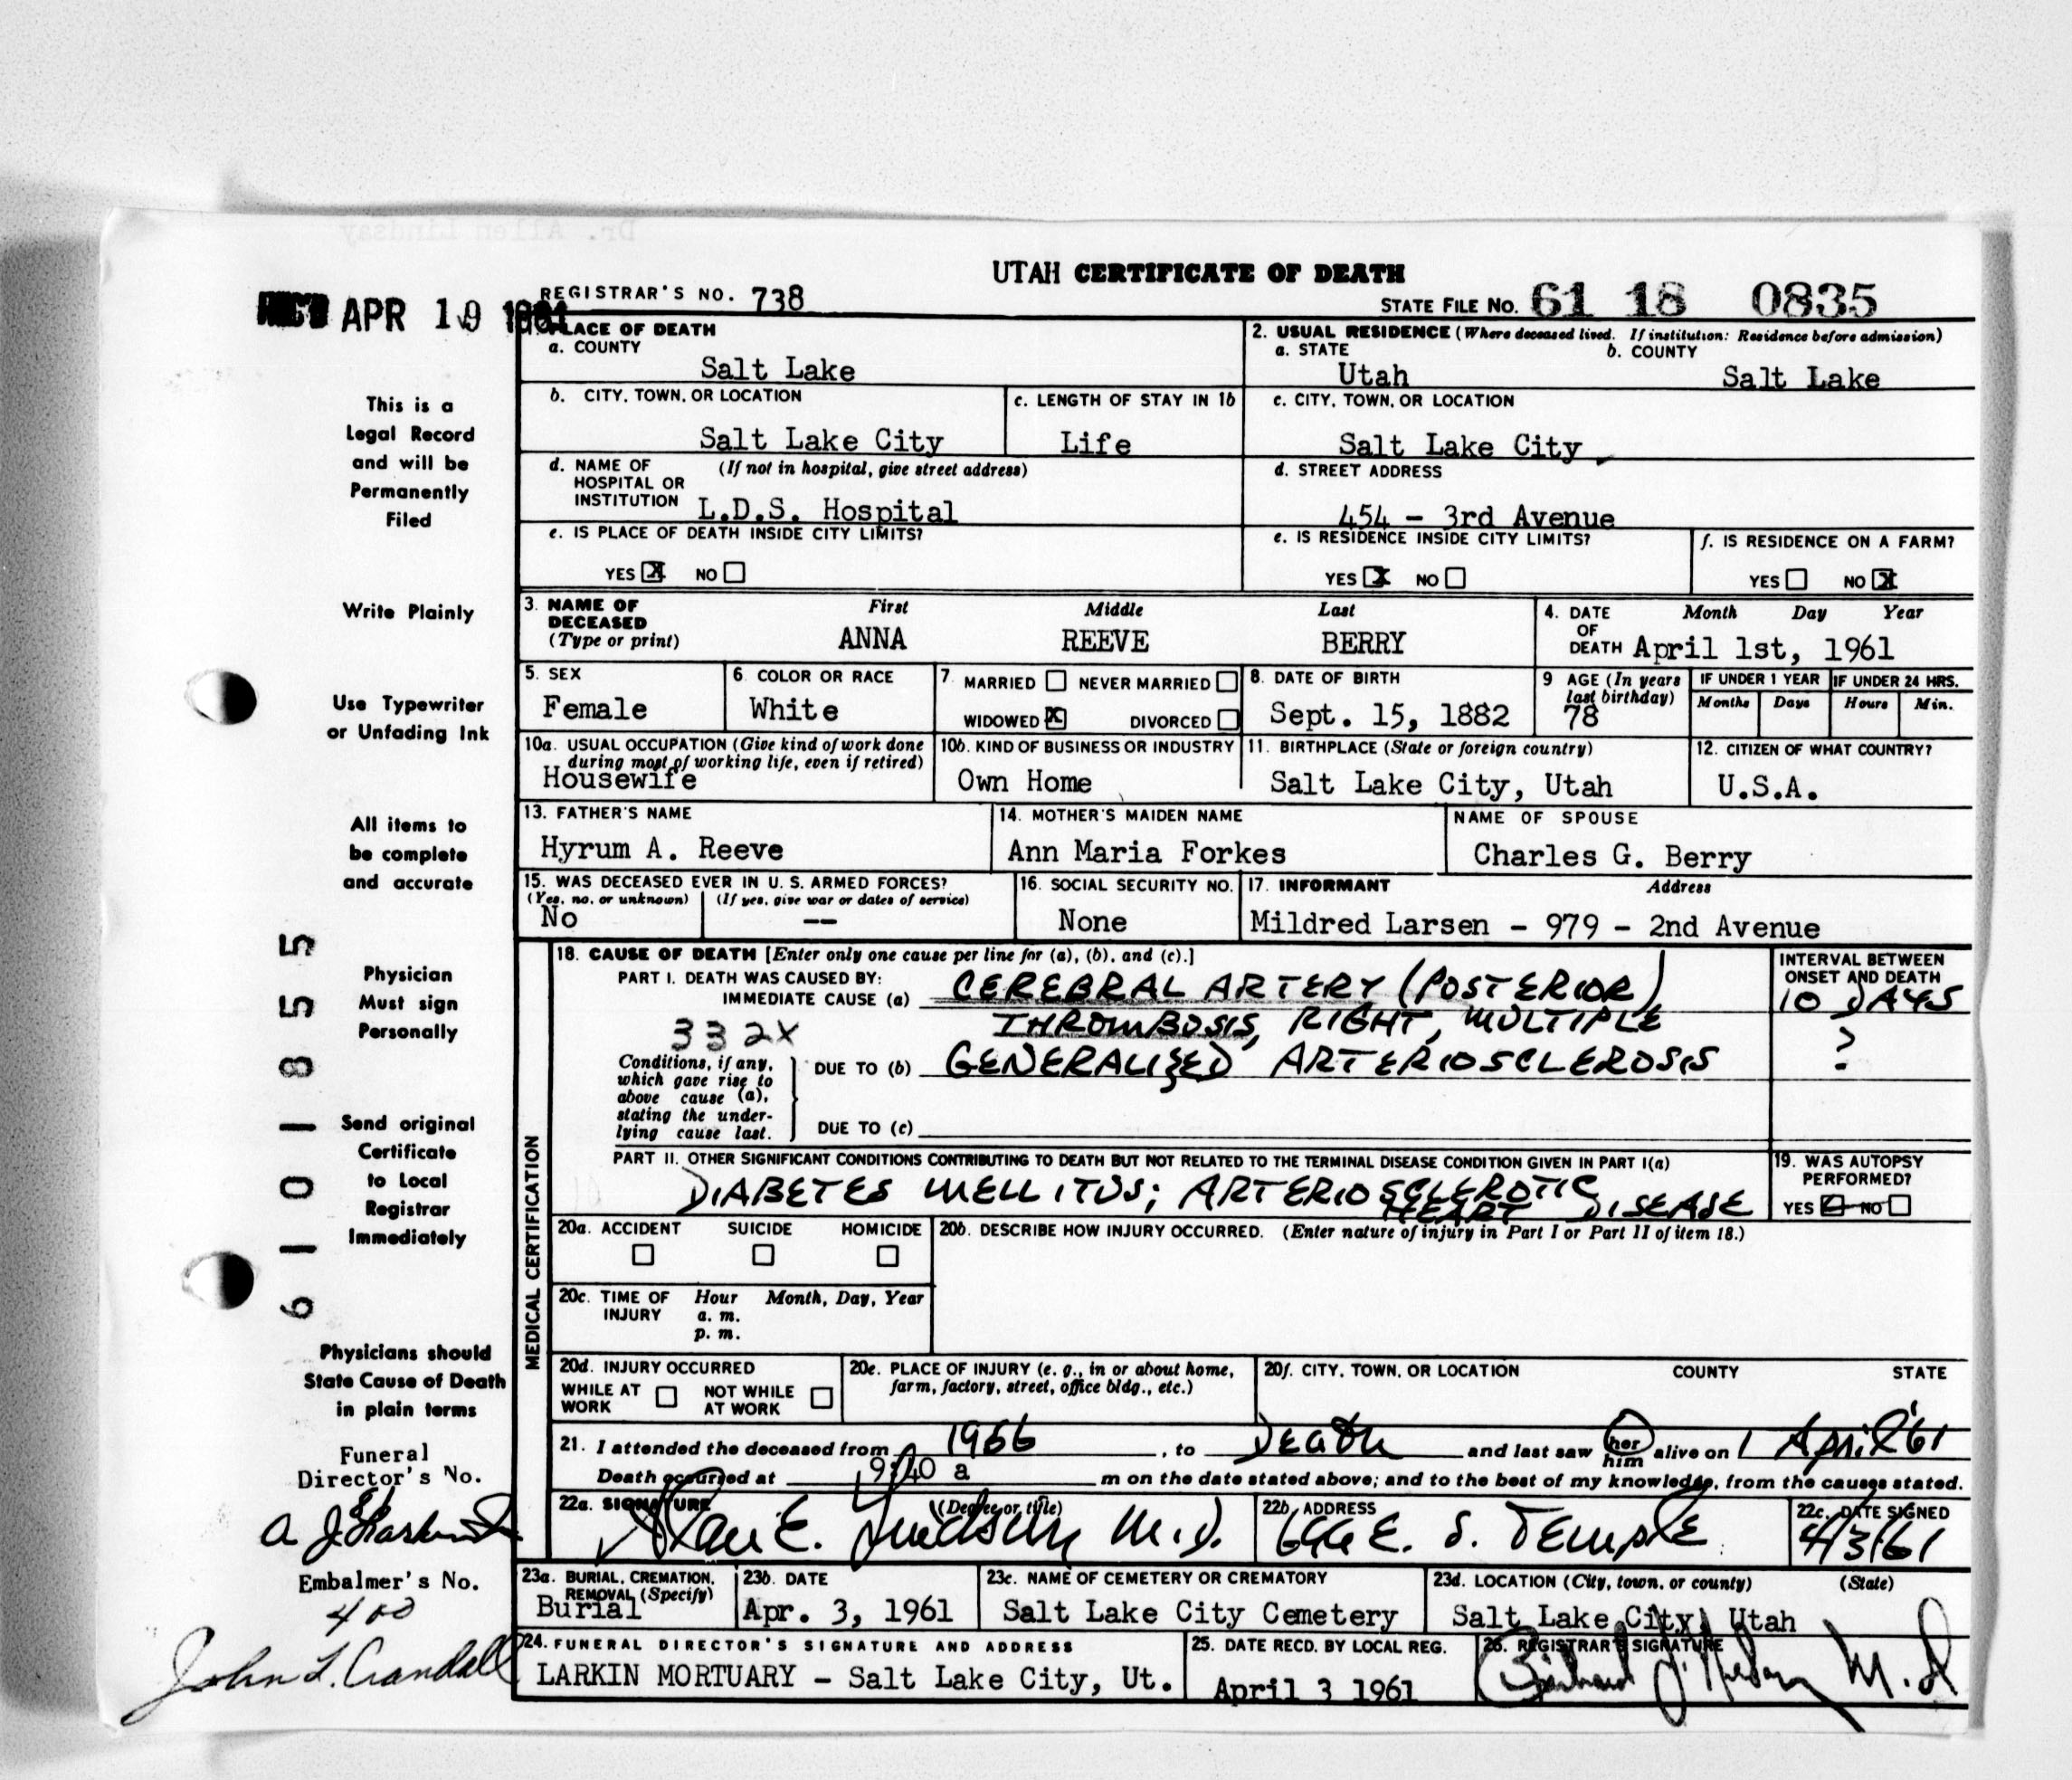 UTAH CERTIFICATE OF DEATH
APR 19
REGISTRAR'S NO. 738
STATE FILE NO. 61 18 0835
PLACE OF DEATH
a. COUNTY
Salt Lake
2. USUAL RESIDENCE (Where deceased lived. If institution: Residence before admission)
a. STATE b. COUNTY
Utah Salt Lake
b. CITY, TOWN, OR LOCATION
Salt Lake City
c. LENGTH OF STAY IN 1b
Life
c. CITY, TOWN, OR LOCATION
Salt Lake City
d. NAME OF (If not in hospital, give street address)
HOSPITAL OR
INSTITUTION L.D.S. Hospital
d. STREET ADDRESS
454 - 3rd Avenue
e. IS PLACE OF DEATH INSIDE CITY LIMITS?
YES X NO
e. IS RESIDENCE INSIDE CITY LIMITS?
YES X NO
f. IS RESIDENCE ON A FARM?
YES NO X
3. NAME OF First Middle Last
DECEASED
(Type or print) ANNA REEVE BERRY
4. DATE Month Day Year
OF
DEATH April 1st, 1961
5. SEX
Female
6. COLOR OR RACE
White
7 MARRIED NEVER MARRIED
WIDOWED X DIVORCED
8. DATE OF BIRTH
Sept. 15, 1882
9 AGE (In years
last birthday)
78
IF UNDER 1 YEAR IF UNDER 24 HRS.
Months Days Hours Min.
10a. USUAL OCCUPATION (Give kind of work done
during most of working life, even if retired)
Housewife
10b. KIND OF BUSINESS OR INDUSTRY
Own Home
11. BIRTHPLACE (State or foreign country)
Salt Lake City, Utah
12. CITIZEN OF WHAT COUNTRY?
U.S.A.
13. FATHER'S NAME
Hyrum A. Reeve
14. MOTHER'S MAIDEN NAME
Ann Maria Forkes
NAME OF SPOUSE
Charles G. Berry
15. WAS DECEASED EVER IN U. S. ARMED FORCES?
(Yes, no. or unknown) (If yes, give war or dates of service)
No --
16. SOCIAL SECURITY NO.
None
17. INFORMANT Address
Mildred Larsen - 979 - 2nd Avenue
MEDICAL CERTIFICATION
18. CAUSE OF DEATH [Enter only one cause per line for (a), (b), and (c).]
PART I. DEATH WAS CAUSED BY:
IMMEDIATE CAUSE (a) CEREBRAL ARTERY (POSTERIOR)
THROMBOSIS, RIGHT, MULTIPLE
332X
Conditions, if any,
which gave rise to
above cause (a),
stating the under-
lying cause last.
DUE TO (b) GENERALIZED ARTERIOSCLEROSIS
DUE TO (c)
INTERVAL BETWEEN
ONSET AND DEATH
10 DAYS
?
PART II. OTHER SIGNIFICANT CONDITIONS CONTRIBUTING TO DEATH BUT NOT RELATED TO THE TERMINAL DISEASE CONDITION GIVEN IN PART I(a)
DIABETES MELLITUS; ARTERIOSCLEROTIC
HEART DISEASE
19. WAS AUTOPSY
PERFORMED?
YES NO
20a. ACCIDENT SUICIDE HOMICIDE
20b. DESCRIBE HOW INJURY OCCURRED. (Enter nature of injury in Part I or Part II of item 18.)
20c. TIME OF Hour Month, Day, Year
INJURY a. m.
p. m.
20d. INJURY OCCURRED
WHILE AT NOT WHILE
WORK AT WORK
20e. PLACE OF INJURY (e. g., in or about home,
farm, factory, street, office bldg., etc.)
20f. CITY, TOWN, OR LOCATION COUNTY STATE
21. I attended the deceased from 1956, to Death and last saw her him alive on 1 April '61
Death occurred at 9:40 a m on the date stated above; and to the best of my knowledge, from the causes stated.
22a. SIGNATURE (Degree or title)
E. Lindsay M.D.
22b. ADDRESS
E. S. TEMPLE
22c. DATE SIGNED
4/3/61
23a. BURIAL, CREMATION,
REMOVAL (Specify)
Burial
23b. DATE
Apr. 3, 1961
23c. NAME OF CEMETERY OR CREMATORY
Salt Lake City Cemetery
23d. LOCATION (City, town, or county) (State)
Salt Lake City, Utah
24. FUNERAL DIRECTOR'S SIGNATURE AND ADDRESS
LARKIN MORTUARY - Salt Lake City, Ut.
25. DATE RECD. BY LOCAL REG.
April 3 1961
26. REGISTRAR'S SIGNATURE
M.D
This is a
Legal Record
and will be
Permanently
Filed
Write Plainly
Use Typewriter
or Unfading Ink
All items to
be complete
and accurate
Physician
Must sign
Personally
Send original
Certificate
to Local
Registrar
Immediately
Physicians should
State Cause of Death
in plain terms
Funeral
Director's No.
Embalmer's No.
400
John L. Crandall
61018 55